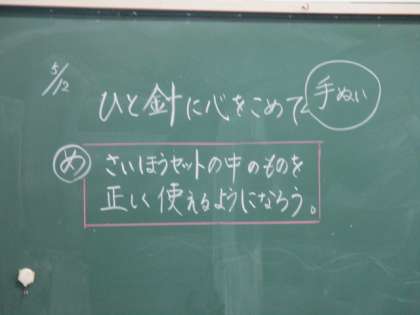 5/12
ひと針に心をこめて 手ぬい
め さいほうセットの中のものを
正しく使えるようになろう。